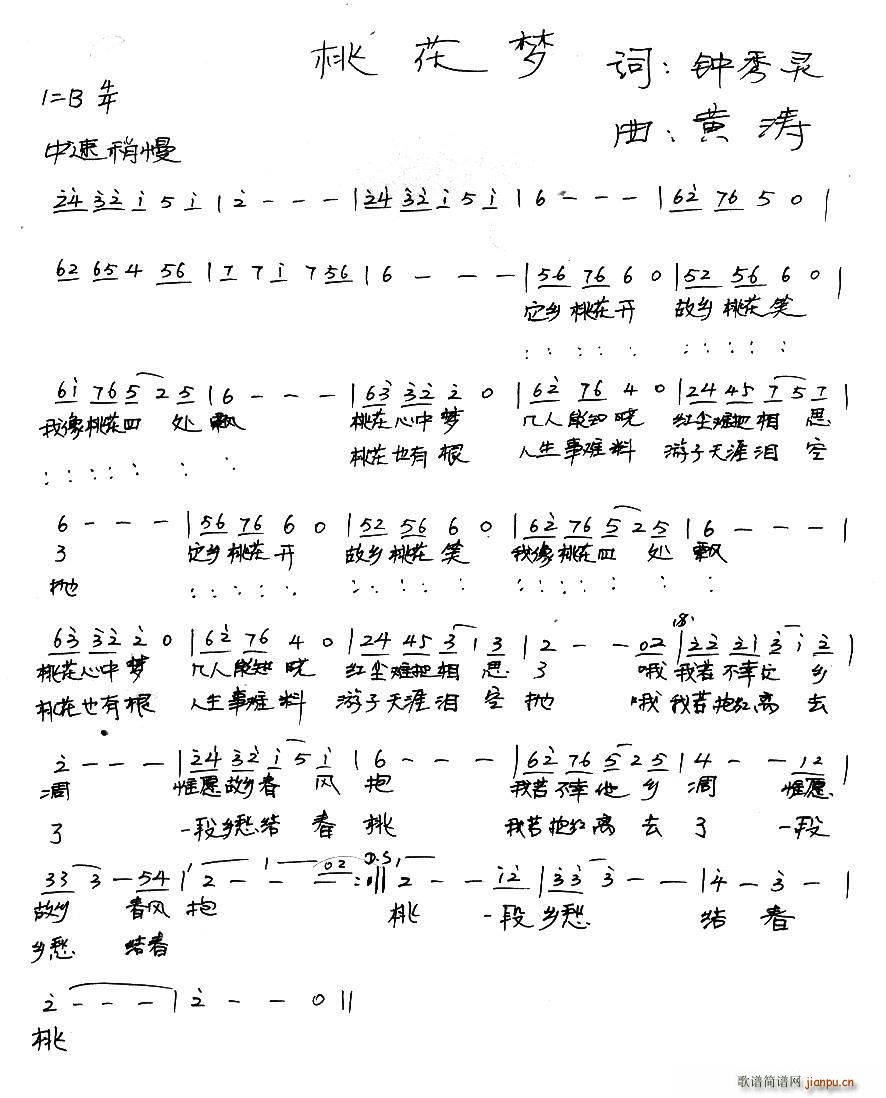 桃花梦
词：钟秀灵
1=B 4/4
曲：黄涛
中速稍慢
24 32 1 5 1 | 2 - - - | 24 32 1 5 1 | 6 - - - | 62 76 5 0 |
62 65 4 56 | 7 7 1 7 56 | 6 - - - | 56 76 6 0 | 52 56 6 0 |
它乡桃花开 故乡桃花笑
: : : : : : : : : :
61 76 5 2 5 | 6 - - - | 63 32 2 0 | 62 76 4 0 | 24 45 7 5 7
我像桃花四处飘 桃花心中梦 几人能知晓 红尘难把相思
: : : : : : : 桃花也有根 人生事难料 游子天涯泪空
6 - - - | 56 76 6 0 | 52 56 6 0 | 62 76 5 2 5 | 6 - - - |
了 它乡桃花开 故乡桃花笑 我像桃花四处飘
抛 : : : : : : : : : : : : : : : : :
63 32 2 0 | 62 76 4 0 | 24 45 3 1 3 | 2 - - 02 | 22 21 3 1 2 |
桃花心中梦 几人能知晓 红尘难把相思了 哦我若不幸它乡
桃花也有根 人生事难料 游子天涯泪空抛 哦我若抱红离去
2 - - - | 24 32 1 5 1 | 6 - - - | 62 76 5 2 5 | 4 - - 12 |
凋 惟愿故乡春风抱 我若不幸他乡凋 惟愿
了 一段乡愁结春桃 我若抱红离去了 一段
33 3 - 54 | 2 - - - 02 :|| D.S. 2 - - 12 | 33 3 - - | 4 - 3 - |
故乡 春风抱 桃 一段乡愁 结春
乡愁 结春
2 - - - | 2 - - 0 ||
桃
歌谱简谱网 jianpu.cn